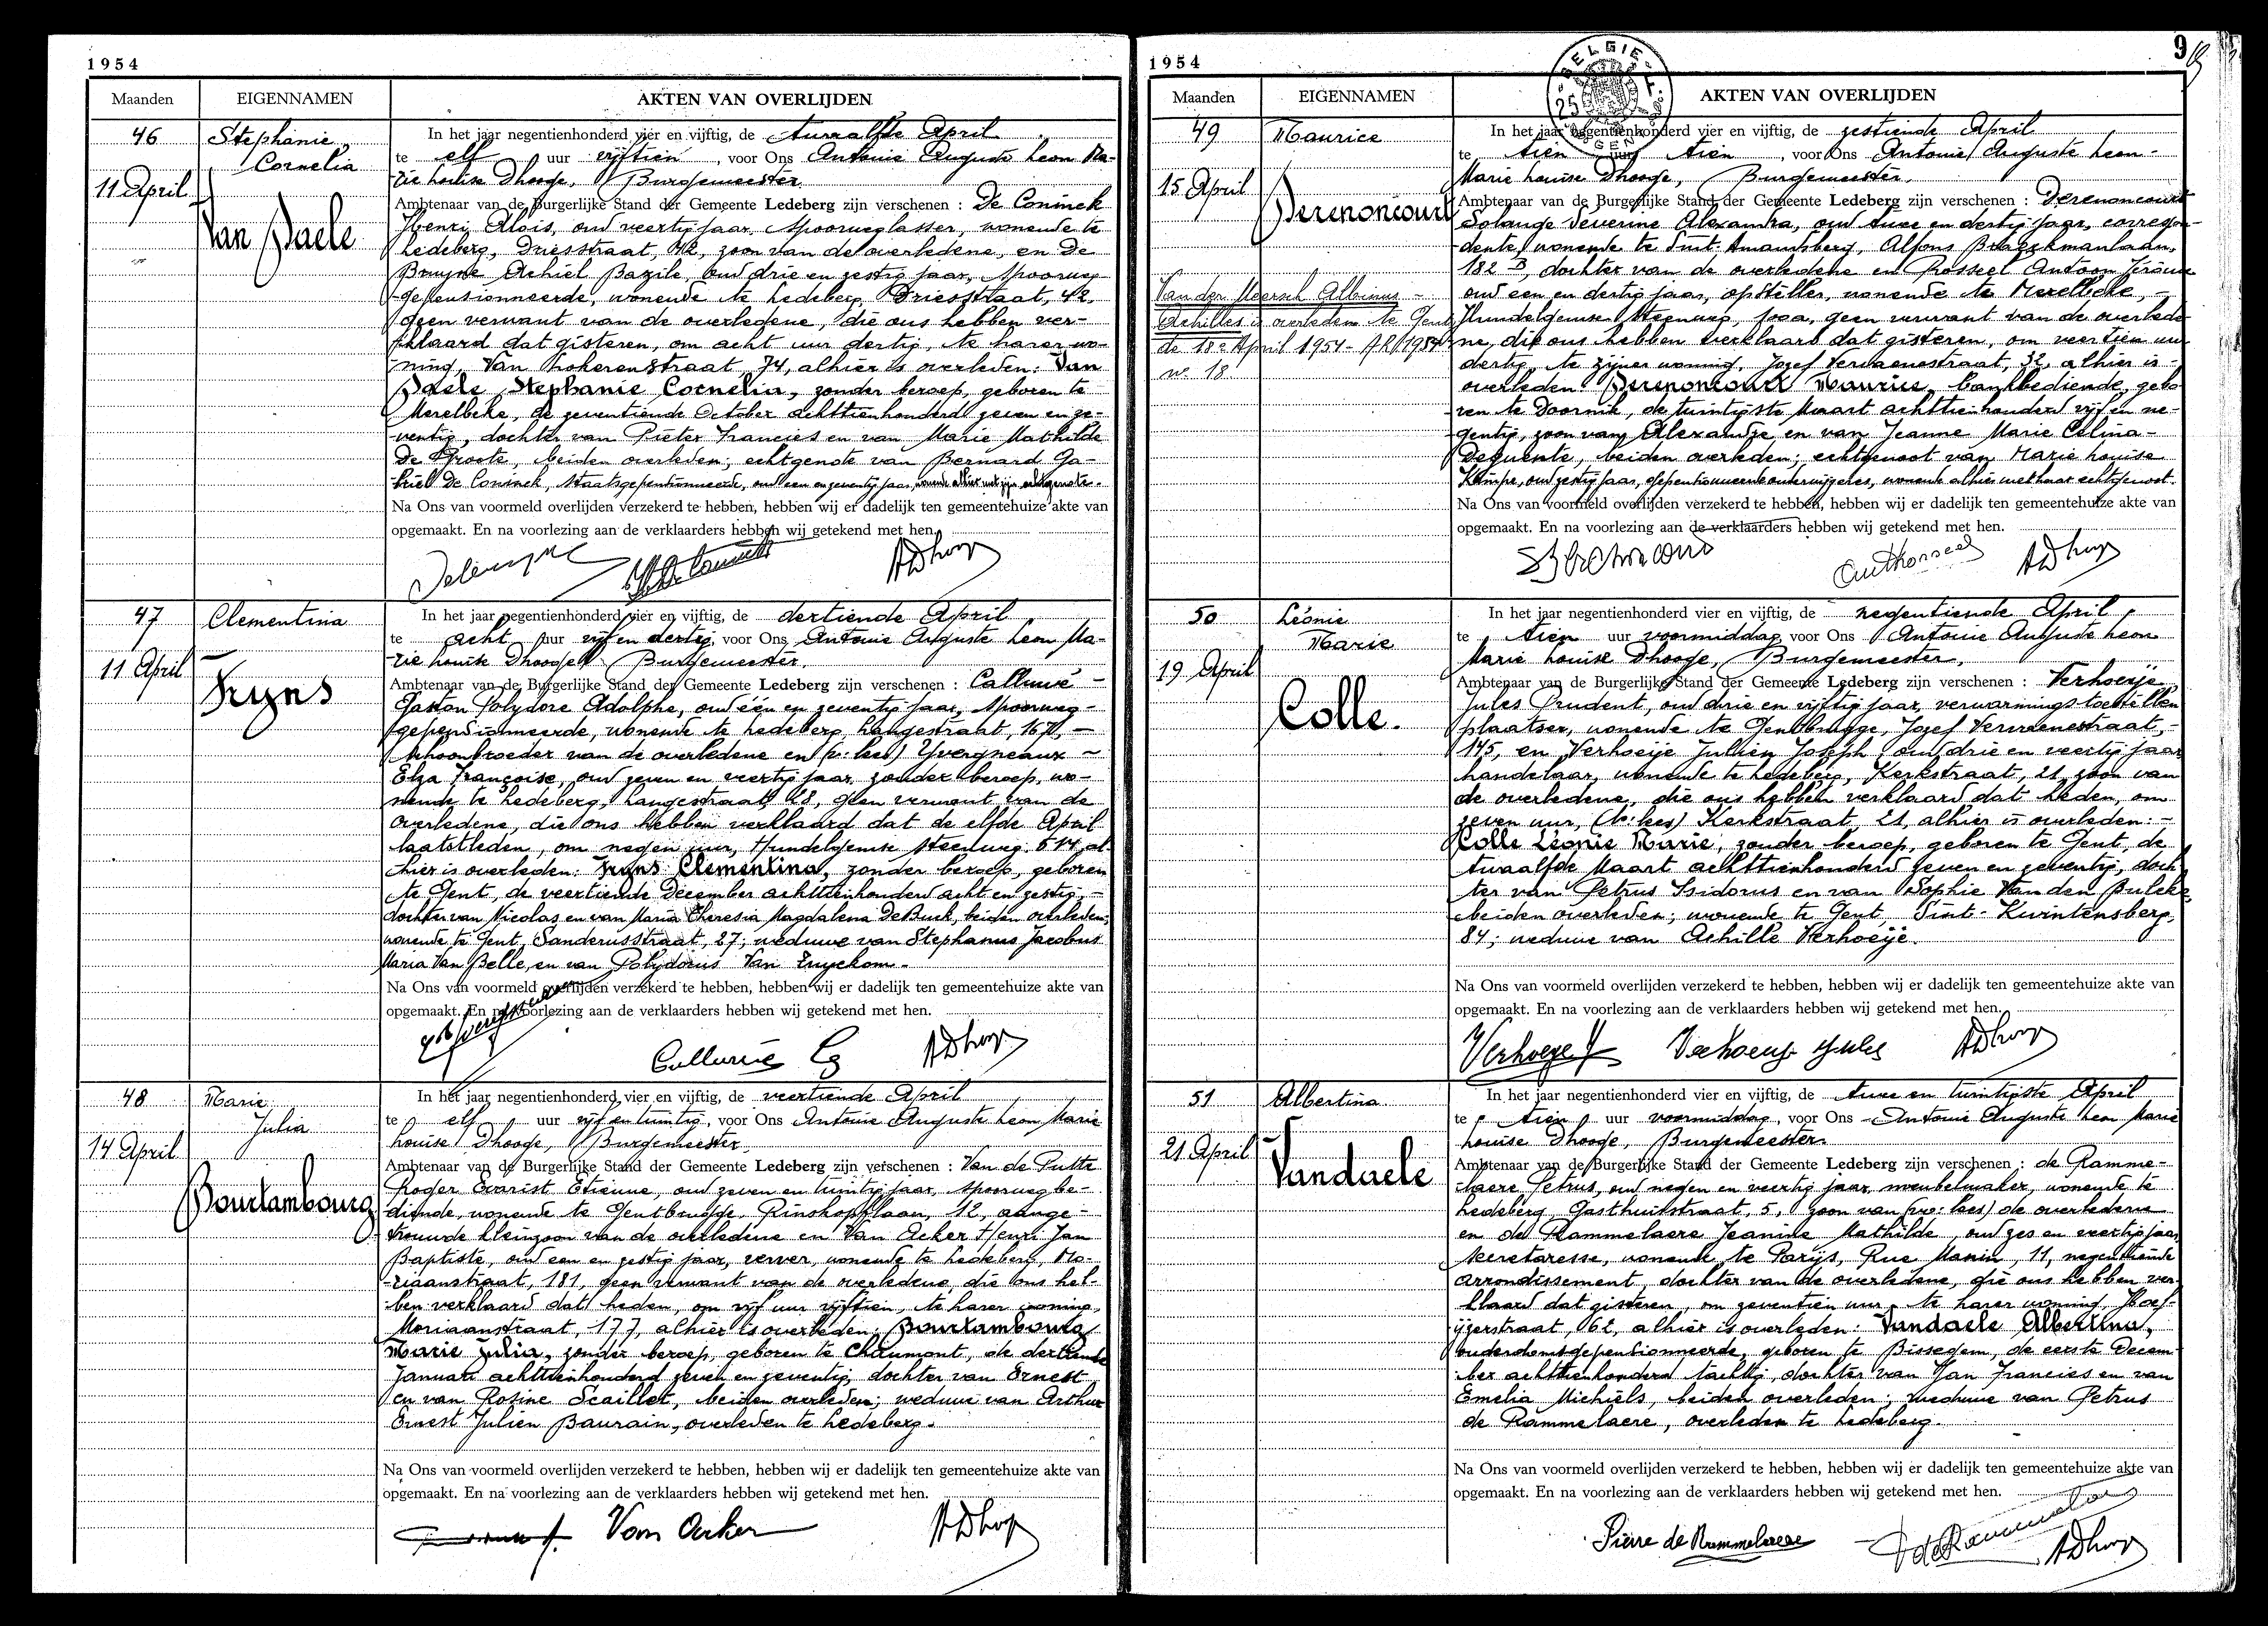 1954
Maanden EIGENNAMEN AKTEN VAN OVERLIJDEN
46 Stephanie Cornelia
11 April
Van Daele
In het jaar negentienhonderd vier en vijftig, de twaalfde April
te elf uur vijftien, voor Ons Antonie Auguste Leon Ma-
rie Louise Dhooge, Burgemeester
Ambtenaar van de Burgerlijke Stand der Gemeente Ledeberg zijn verschenen : De Coninck
Henri Alois, oud veertig jaar, spoorweglasser, wonende te
Ledeberg, Driesstraat, 42, zoon van de overledene, en De
Bruyne Achiel Bazile, oud drie en zestig jaar, spoorweg-
gepensionneerde, wonende te Ledeberg Driesstraat, 42,
geen verwant van de overledene, die ons hebben ver-
klaard dat gisteren, om acht uur dertig, te harer wo-
ning, Van Lokerenstraat, 74, alhier is overleden: Van
Daele Stephanie Cornelia, zonder beroep, geboren te
Merelbeke, de zeventiende October achttienhonderd zeven en ze-
ventig, dochter van Pieter Francies en van Marie Mathilde
De Groote, beiden overleden; echtgenote van Bernard Ga-
briel De Coninck, Staatsgepensionneerde, oud een en zeventig jaar, wonende alhier met zijn echtgenote.
Na Ons van voormeld overlijden verzekerd te hebben, hebben wij er dadelijk ten gemeentehuize akte van
opgemaakt. En na voorlezing aan de verklaarders hebben wij getekend met hen.
ADhooge
47 Clementina
11 April
Fryns
In het jaar negentienhonderd vier en vijftig, de dertiende April
te acht uur vijf en dertig, voor Ons Antonie Auguste Leon Ma-
rie Louise Dhooge, Burgemeester.
Ambtenaar van de Burgerlijke Stand der Gemeente Ledeberg zijn verschenen : Calluwé -
Gaston Polydore Adolphe, oud één en zeventig jaar, spoorweg-
gepensionneerde, wonende te Ledeberg, Langestraat, 167, -
schoonbroeder van de overledene en (v: lees) Yvergneaux -
Elza Françoise, oud zeven en veertig jaar, zonder beroep, wo-
nende te Ledeberg, Langestraat, 28, geen verwant van de
overledene, die ons hebben verklaard dat de elfde April
laatstleden, om negen uur, Hundelgemse Steenweg, 614, al-
hier is overleden: Fryns Clementina, zonder beroep, geboren
te Gent, de veertiende December achttienhonderd acht en zestig, -
dochter van Nicolas en van Maria Theresia Magdalena De Buck, beiden overleden;
wonende te Gent, Sanderusstraat, 27; weduwe van Stephanus Jacobus
Maria Van Belle, en van Polydorus Van Zuyckom.
Na Ons van voormeld overlijden verzekerd te hebben, hebben wij er dadelijk ten gemeentehuize akte van
opgemaakt. En na voorlezing aan de verklaarders hebben wij getekend met hen.
Calluwé ADhooge
48 Marie Julia
14 April
Bourtambourg
In het jaar negentienhonderd vier en vijftig, de veertiende April
te elf uur vijf en twintig, voor Ons Antonie Auguste Leon Marie
Louise Dhooge, Burgemeester
Ambtenaar van de Burgerlijke Stand der Gemeente Ledeberg zijn verschenen : Van de Putte
Roger Evarist Etienne, oud zeven en twintig jaar, spoorwegbe-
diende, wonende te Gentbrugge, Rinskopflaan, 12, aange-
trouwde kleinzoon van de overledene en Van Acker Henri Jan
Baptiste, oud een en zestig jaar, verver, wonende te Ledeberg, Mo-
riaanstraat, 181, geen verwant van de overledene, die ons heb-
ben verklaard dat heden, om vijf uur vijftien, te harer woning,
Moriaanstraat, 177, alhier is overleden: Bourtambourg
Marie Julia, zonder beroep, geboren te Chaumont, de dertiende
Januari achttienhonderd zeven en zeventig, dochter van Ernest
en van Rosine Scaillet, beiden overleden; weduwe van Arthur
Ernest Julien Baurain, overleden te Ledeberg.
Na Ons van voormeld overlijden verzekerd te hebben, hebben wij er dadelijk ten gemeentehuize akte van
opgemaakt. En na voorlezing aan de verklaarders hebben wij getekend met hen.
Van Acker ADhooge
1954
9
BELGIE
Maanden EIGENNAMEN AKTEN VAN OVERLIJDEN
49 Maurice
15 April
Derenoncourt
Van der Meersch Albinus -
Achilles is overleden te Gent
de 18e April 1954 - AR/1954
nr 18
In het jaar negentienhonderd vier en vijftig, de zestiende April
te tien uur tien, voor Ons Antonie Auguste Leon -
Marie Louise Dhooge, Burgemeester.
Ambtenaar van de Burgerlijke Stand der Gemeente Ledeberg zijn verschenen : Derenoncourt
Solange Séverine Alexandra, oud twee en dertig jaar, correspon-
dente, wonende te Sint-Amandsberg, Alfons Braeckmanlaan,
182 B, dochter van de overledene en Rosseel Antoon Jérôme
oud een en dertig jaar, opsteller, wonende te Merelbeke, -
Hundelgemse Steenweg, geen verwant van de overlede-
ne, die ons hebben verklaard dat gisteren, om veertien uur
dertig, te zijner woning, Jozef Vervaenestraat, 32, alhier is -
overleden: Derenoncourt Maurice, bankbediende, gebo-
ren te Doornik, de twintigste Maart achttienhonderd vijf en ne-
gentig, zoon van Alexandre en van Jeanne Marie Célina -
Dequente, beiden overleden; echtgenoot van Marie Louise
Kimpe, oud zestig jaar, gepensionneerde onderwijzeres, wonende alhier met haar echtgenoot.
Na Ons van voormeld overlijden verzekerd te hebben, hebben wij er dadelijk ten gemeentehuize akte van
opgemaakt. En na voorlezing aan de verklaarders hebben wij getekend met hen.
SDerenoncourt AntRosseel ADhooge
50 Léonie Marie
19 April
Colle.
In het jaar negentienhonderd vier en vijftig, de negentiende April,
te tien uur voormiddag, voor Ons Antonie Auguste Leon
Marie Louise Dhooge, Burgemeester,
Ambtenaar van de Burgerlijke Stand der Gemeente Ledeberg zijn verschenen : Verhoeije
Jules Prudent, oud drie en vijftig jaar, verwarmingstoestellen
plaatser, wonende te Gentbrugge, Jozef Vervaenestraat, -
145, en Verhoeije Julien Joseph, oud drie en veertig jaar
handelaar, wonende te Ledeberg, Kerkstraat, 21, zoon van
de overledene, die ons hebben verklaard dat heden, om
zeven uur, (w: lees) Kerkstraat, 21, alhier is overleden: -
Colle Léonie Marie, zonder beroep, geboren te Gent, de
twaalfde Maart achttienhonderd zeven en zeventig, doch-
ter van Petrus Isidorus en van Sophie Van den Bulcke,
beiden overleden; wonende te Gent, Sint-Kwintensberg,
84; weduwe van Achille Verhoeije.
Na Ons van voormeld overlijden verzekerd te hebben, hebben wij er dadelijk ten gemeentehuize akte van
opgemaakt. En na voorlezing aan de verklaarders hebben wij getekend met hen.
Verhoeye J Verhoeye Jules ADhooge
51 Albertina
21 April
Vandaele
In het jaar negentienhonderd vier en vijftig, de twee en twintigste April
te tien uur voormiddag, voor Ons Antonie Auguste Leon Marie
Louise Dhooge, Burgemeester
Ambtenaar van de Burgerlijke Stand der Gemeente Ledeberg zijn verschenen : de Ramme-
laere Petrus, oud negen en veertig jaar, meubelmaker, wonende te
Ledeberg, Gasthuisstraat, 5, zoon van (w: lees) de overledene
en de Rammelaere Jeanine Mathilde, oud zes en veertig jaar,
secretaresse, wonende te Parijs, Rue Manin, 11, negentiende
arrondissement, dochter van de overledene, die ons hebben ver-
klaard dat gisteren, om zeventien uur, te harer woning, Hoef-
ijzerstraat, 62, alhier is overleden: Vandaele Albertina,
ouderdomsgepensionneerde, geboren te Bissegem, de eerste Decem-
ber achttienhonderd tachtig, dochter van Jan Francies en van
Emelia Michiels, beiden overleden; weduwe van Petrus
de Rammelaere, overleden te Ledeberg.
Na Ons van voormeld overlijden verzekerd te hebben, hebben wij er dadelijk ten gemeentehuize akte van
opgemaakt. En na voorlezing aan de verklaarders hebben wij getekend met hen.
Pierre de Rammelaere J de Rammelaere ADhooge